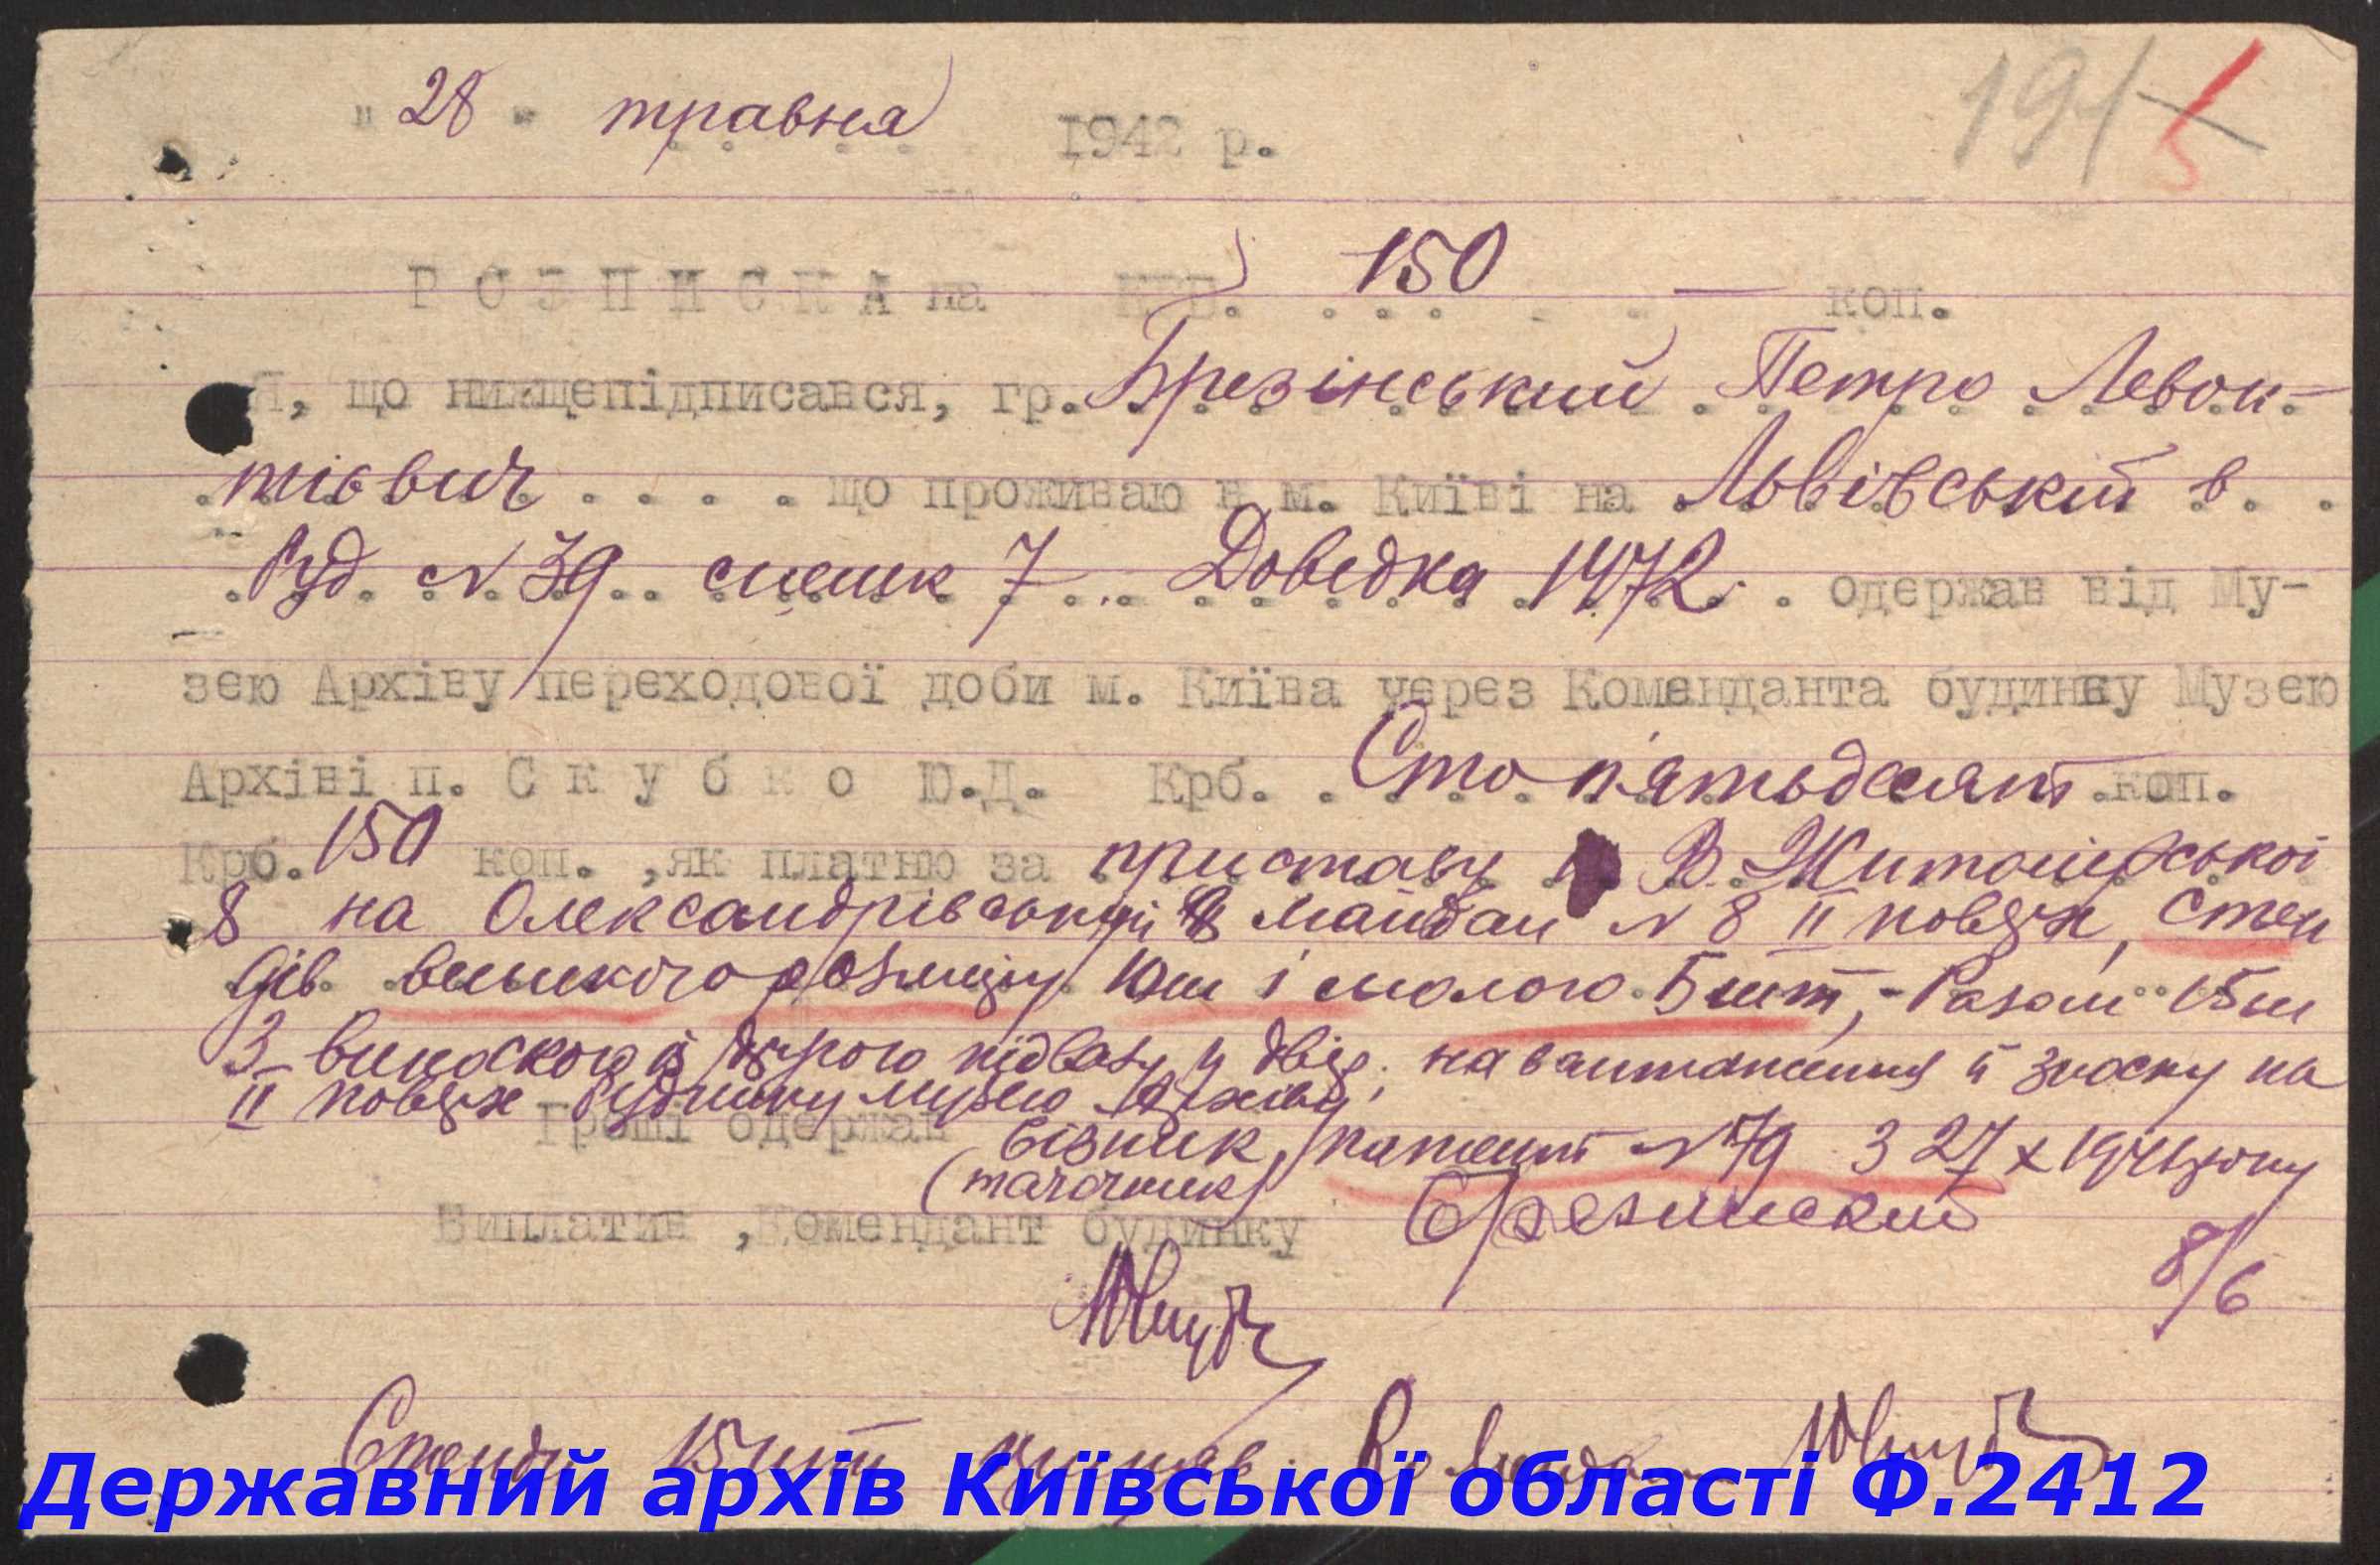 " 28 " травня 1942 р.
191
Р О З П И С К А на крб. 150 — коп.
Я, що нижщепідписався, гр. Брезінський Петро Левон-
тієвич . . . . що проживаю в м. Київі на Львівській в.
буд. №39 .. смешк 7 .. Довідка 1472 . одержав від Му-
зею Архіву переходової доби м. Київа через Коменданта будинку Музею
Архіві п. С к у б к о Ю.Д. Крб. Сто п'ятьдесят коп.
Крб. 150 коп. ,як платню за приставу В. Житомірської
8 на Олександрівський майдан № 8 II поверх, стен
дів великого розміру 10 ш і малого 5 шт, - Разом 15 ш
З виноскою з другого підвалу у двір, навантаження й зноску на
II поверх будинку музею Архіву,
Гроші одержав Візник, патент №79 з 27 х 1941 року
(тачочник) Брезинский
Виплатив ,Комендант будинку
8/6
Стенди 15 шт
Державний архів Київської області Ф.2412